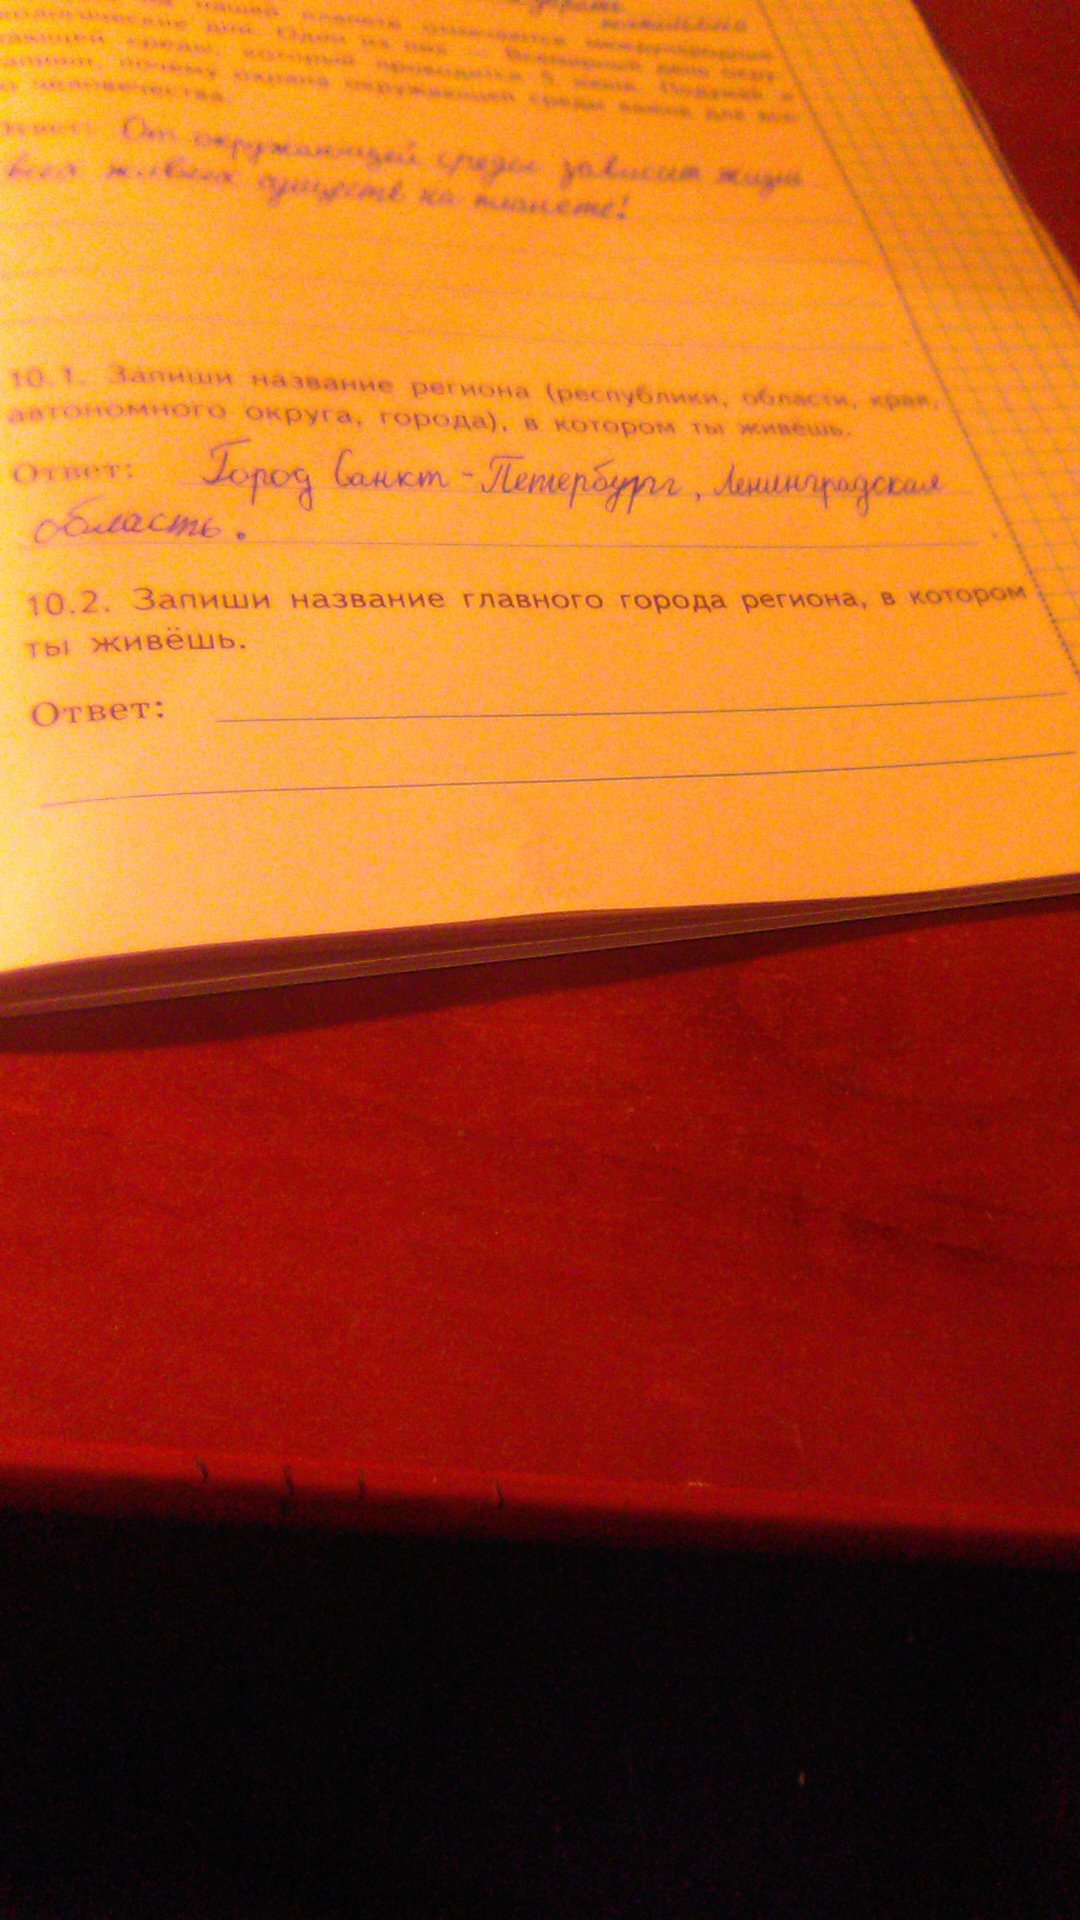 нашей планете отмечаются международные
экологические дни. Один из них — Всемирный день окру-
жающей среды, который проводится 5 июня. Подумай и
запиши, почему охрана окружающей среды важна для все-
го человечества.
Ответ: От окружающей среды зависит жизнь
всех живых существ на планете!
10.1. Запиши название региона (республики, области, края,
автономного округа, города), в котором ты живёшь.
Ответ: Город Санкт-Петербург, Ленинградская
область.
10.2. Запиши название главного города региона, в котором
ты живёшь.
Ответ: